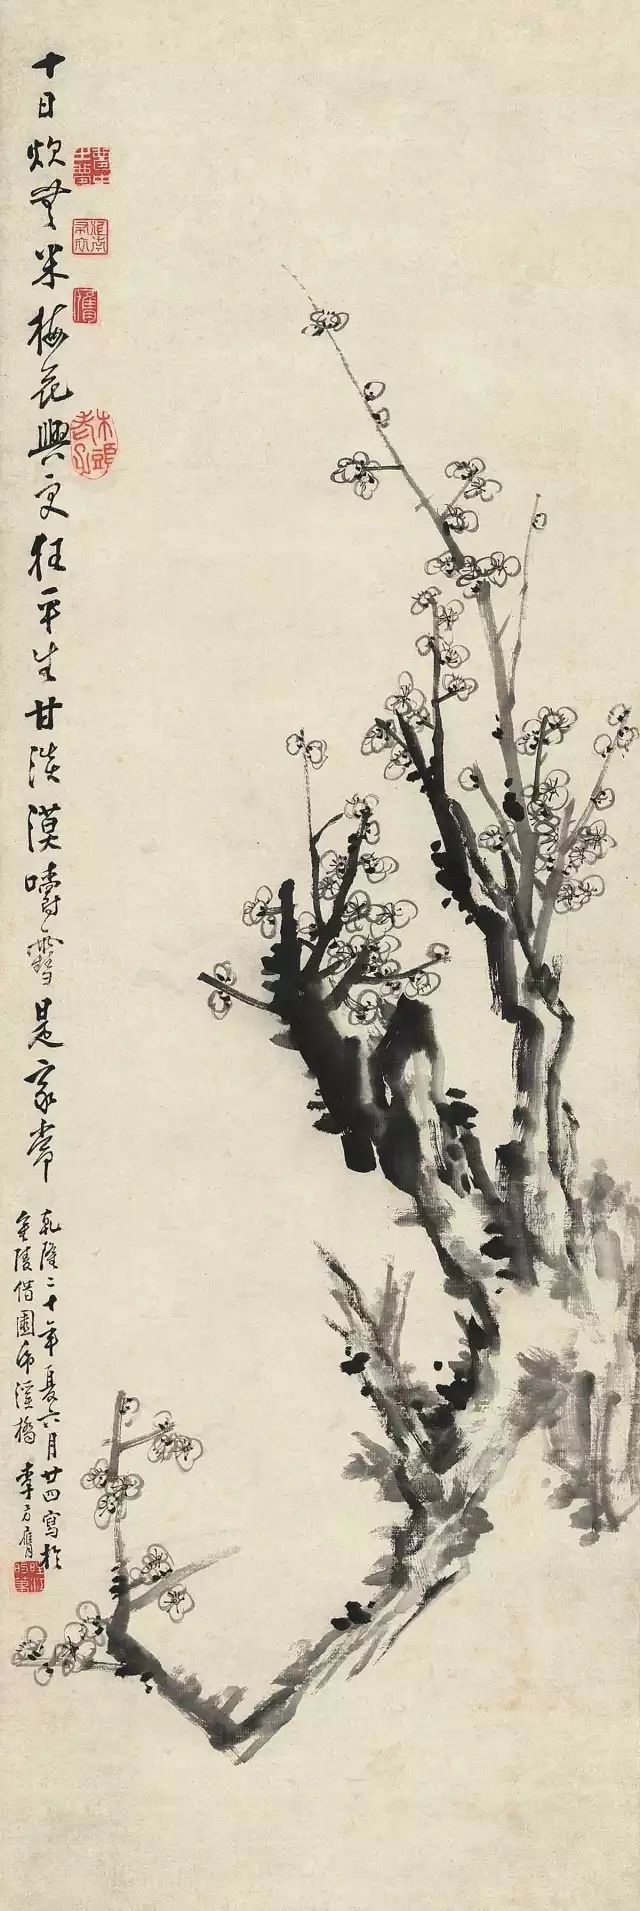 十日炊無米梅花興更狂平生甘淡漠嚼雪是家常
乾隆二十年夏六月廿四寫於
金陵借園虎溪橋 李方膺
木頭老子